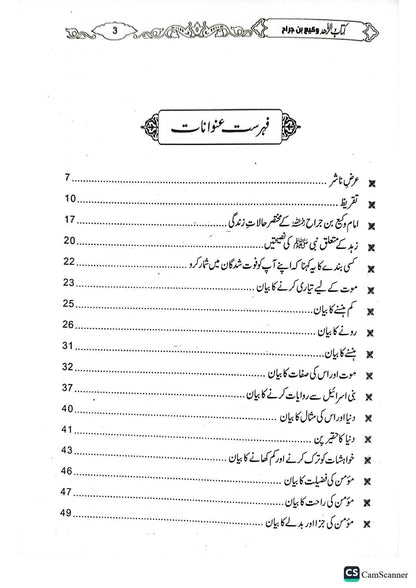 کتاب الزھد وکیع بن جراح
3
فہرست عنوانات
عرض ناشر 7
تقریظ 10
امام وکیع بن جراح رحمہ اللہ کے مختصر حالات زندگی 17
زہد کے متعلق نبی ﷺ کی نصیحتیں 20
کسی بندے کا یہ کہنا کہ اپنے آپ کو فوت شدگان میں شمار کرو 22
موت کے لیے تیاری کرنے کا بیان 23
کم ہنسنے کا بیان 25
رونے کا بیان 26
ہنسنے کا بیان 31
موت اور اس کی صفات کا بیان 32
بنی اسرائیل سے روایات کرنے کا بیان 37
دنیا اور اس کی مثال کا بیان 40
دنیا کا حقیر پن 41
خواہشات کو ترک کرنے اور کم کھانے کا بیان 43
مؤمن کی فضیلت کا بیان 46
مؤمن کی راحت کا بیان 47
مؤمن کی جزا اور بدلے کا بیان 49
CS CamScanner